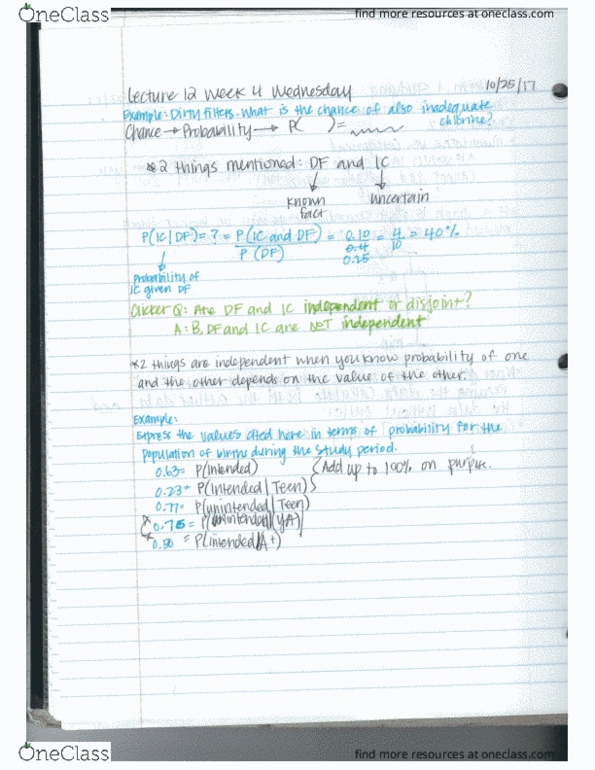 OneClass
find more resources at oneclass.com
Lecture 12 Week 4 Wednesday 10/25/17
Example: Dirty filters. What is the chance of also inadequate chlorine?
Chance → Probability → P( ) =
*2 things mentioned: DF and IC
known fact
uncertain
P(IC|DF) = ? = P(IC and DF) / P(DF) = 0.10 / 0.25 = 4/10 = 40%
Probability of
IC given DF
Clicker Q: Are DF and IC independent or disjoint?
A: B. DF and IC are NOT independent
*2 things are independent when you know probability of one
and the other depends on the value of the other.
Example:
Express the values cited here in terms of probability for the
population of births during the study period.
0.63= P(intended)
Add up to 100% on purpose.
0.23= P(intended|Teen)
0.77= P(unintended|Teen)
0.75= P(unintended|YA)
0.50 = P(intended|A+)
OneClass
find more resources at oneclass.com